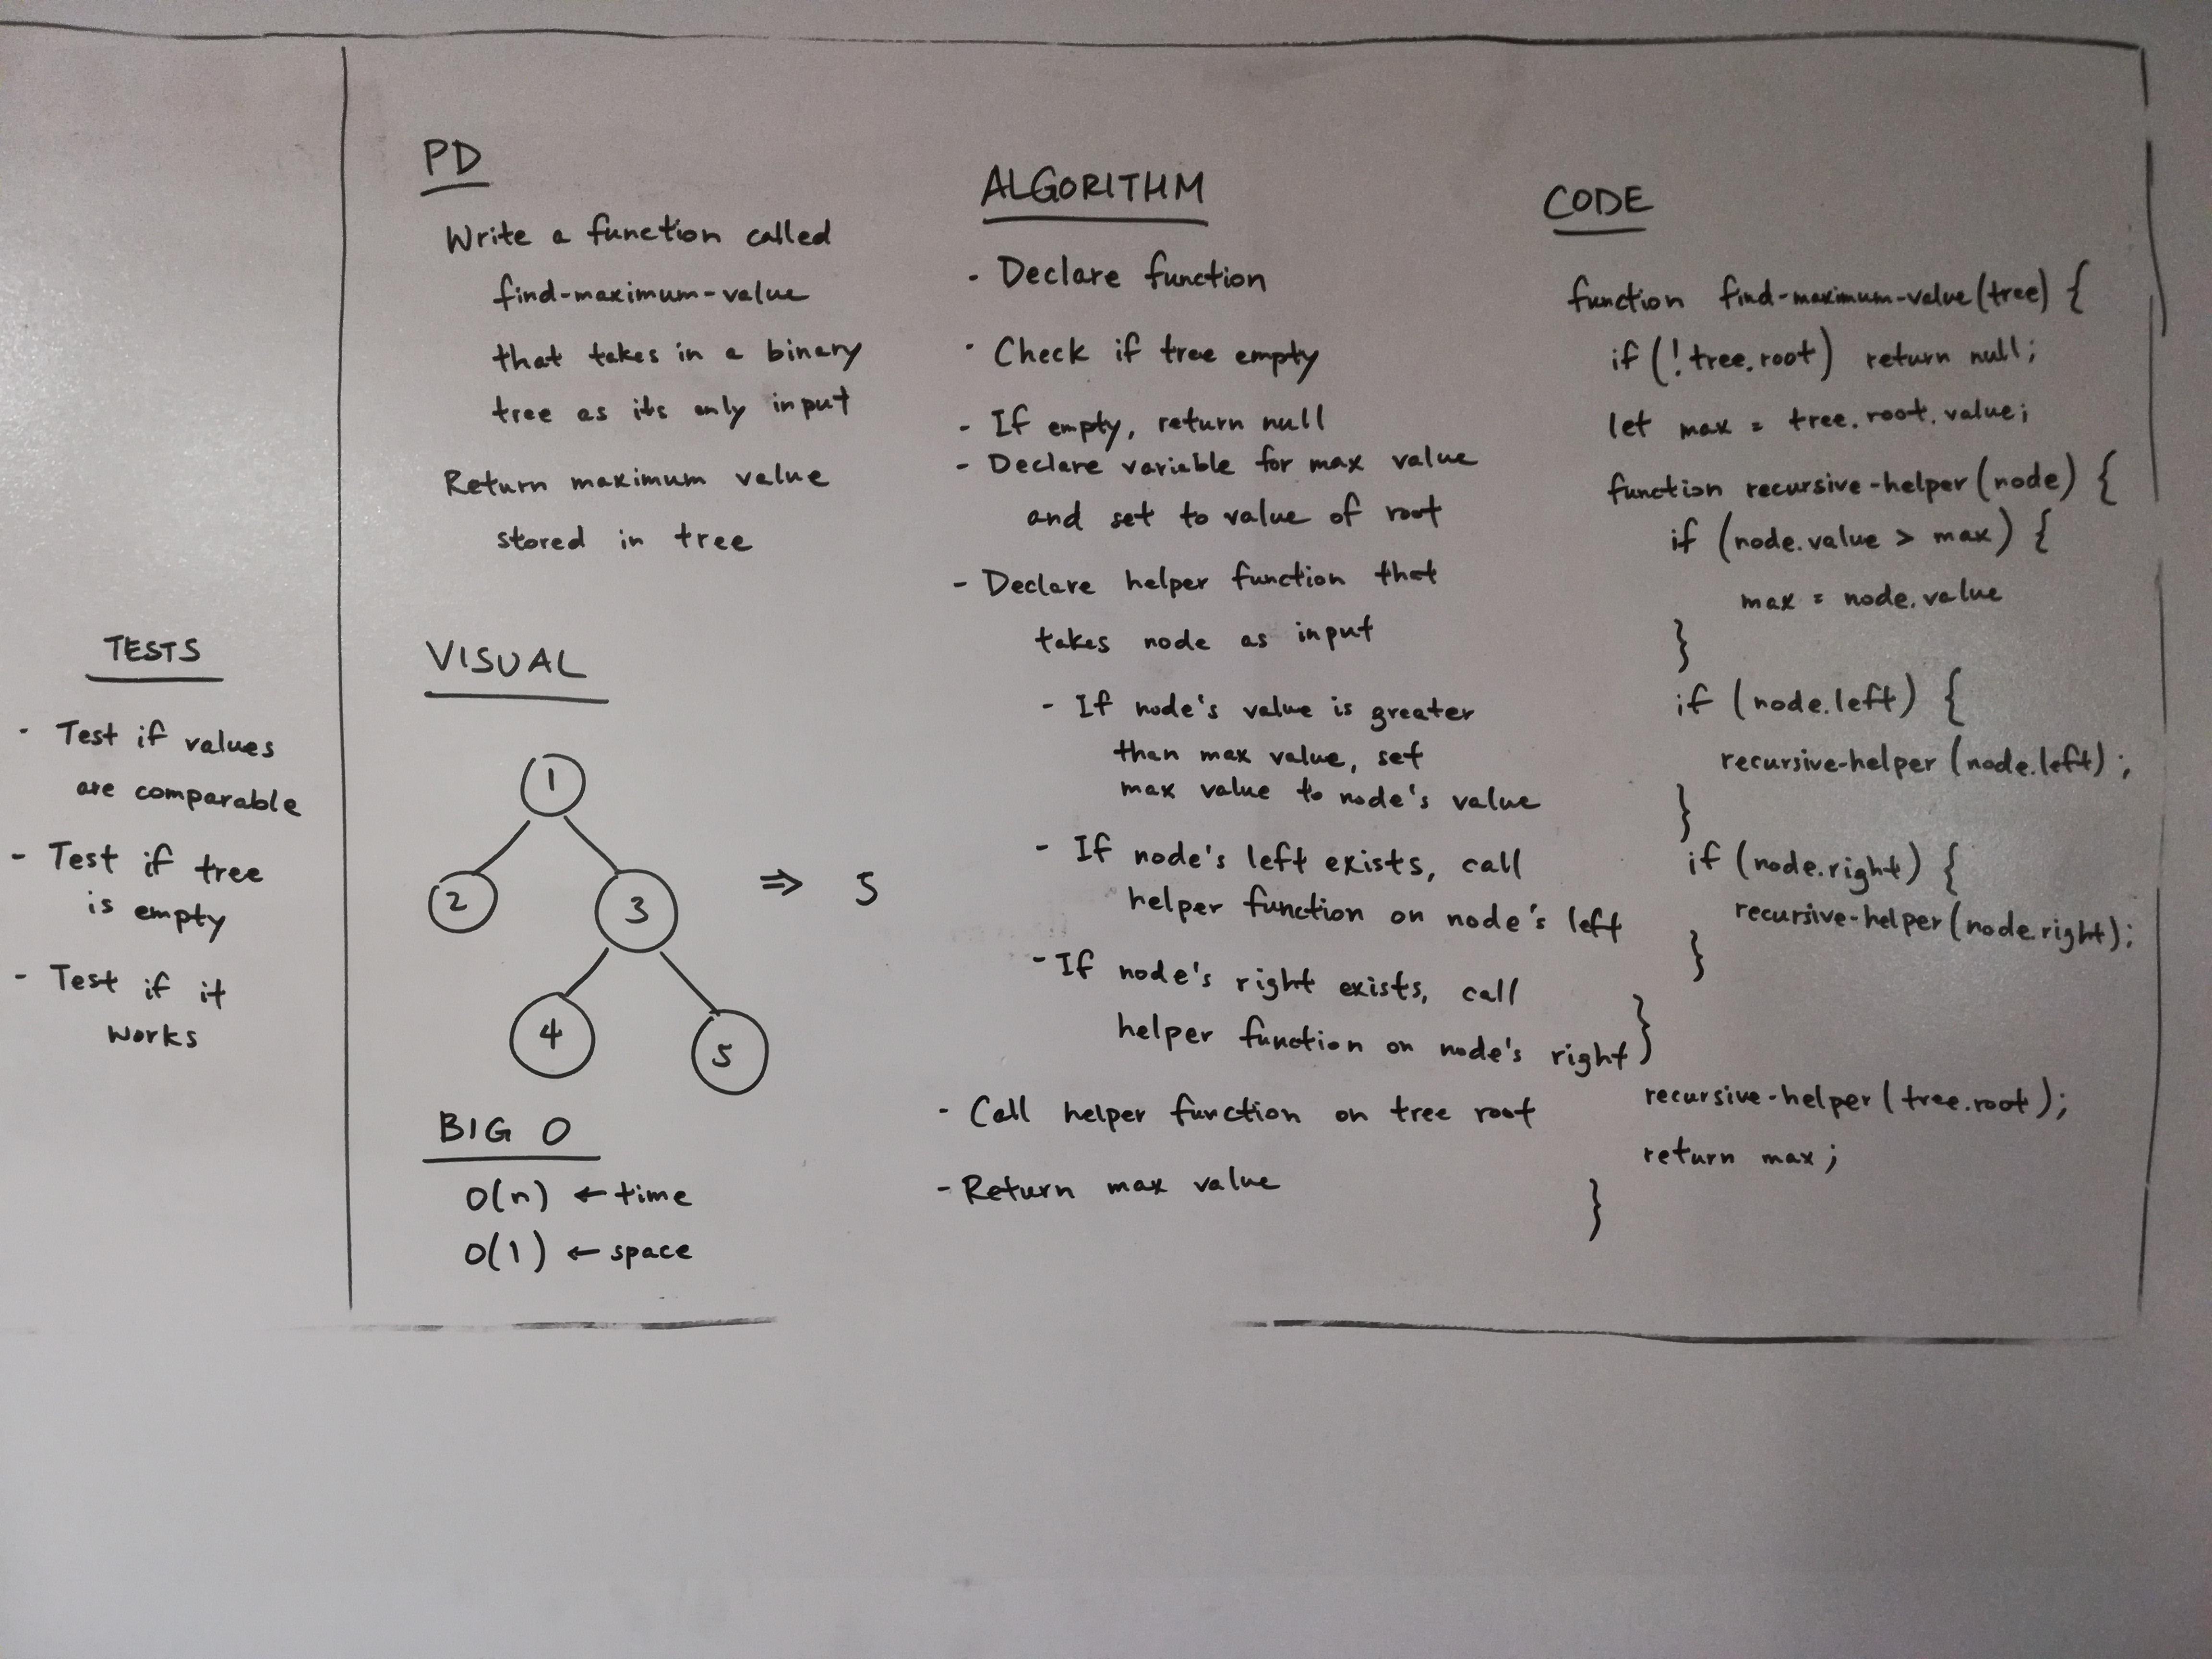 TESTS
- Test if values
are comparable
- Test if tree
is empty
- Test if it
works
PD
Write a function called
find-maximum-value
that takes in a binary
tree as its only input
Return maximum value
stored in tree
VISUAL
1
2
3
⇒ 5
4
5
BIG O
O(n) ← time
O(1) ← space
ALGORITHM
- Declare function
- Check if tree empty
- If empty, return null
- Declare variable for max value
and set to value of root
- Declare helper function that
takes node as input
- If node's value is greater
than max value, set
max value to node's value
- If node's left exists, call
helper function on node's left
- If node's right exists, call
helper function on node's right
- Call helper function on tree root
- Return max value
CODE
function find-maximum-value(tree) {
if (!tree.root) return null;
let max = tree.root.value;
function recursive-helper(node) {
if (node.value > max) {
max = node.value
}
if (node.left) {
recursive-helper(node.left);
}
if (node.right) {
recursive-helper(node.right);
}
}
recursive-helper(tree.root);
return max;
}